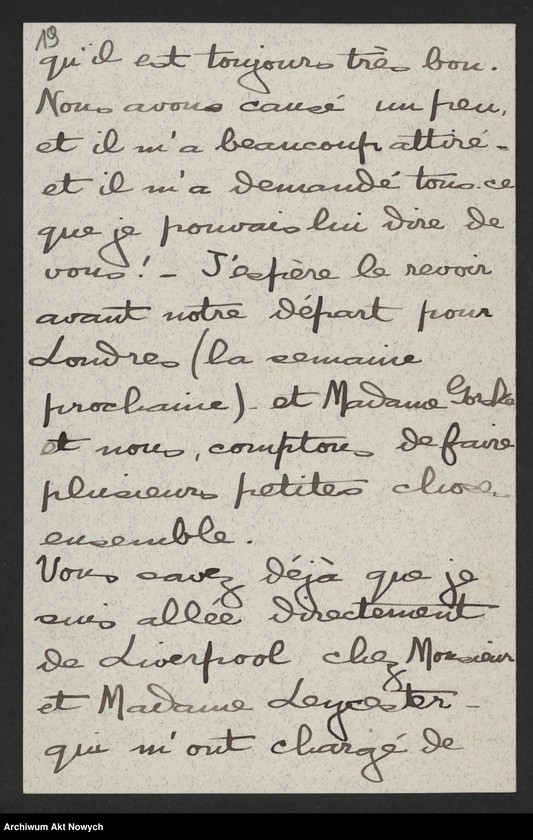 19
qu'il est toujours très bon.
Nous avons causé un peu,
et il m'a beaucoup attiré -
et il m'a demandé tous ce
que je pouvais lui dire de
vous! - J'espère le revoir
avant notre départ pour
Londres (la semaine
prochaine) - et Madame Gorska
et nous, comptons de faire
plusieurs petites choses
ensemble.
Vous savez déjà que je
suis allée directement
de Liverpool chez Monsieur
et Madame Leycester -
qui m'ont chargé de
Archiwum Akt Nowych